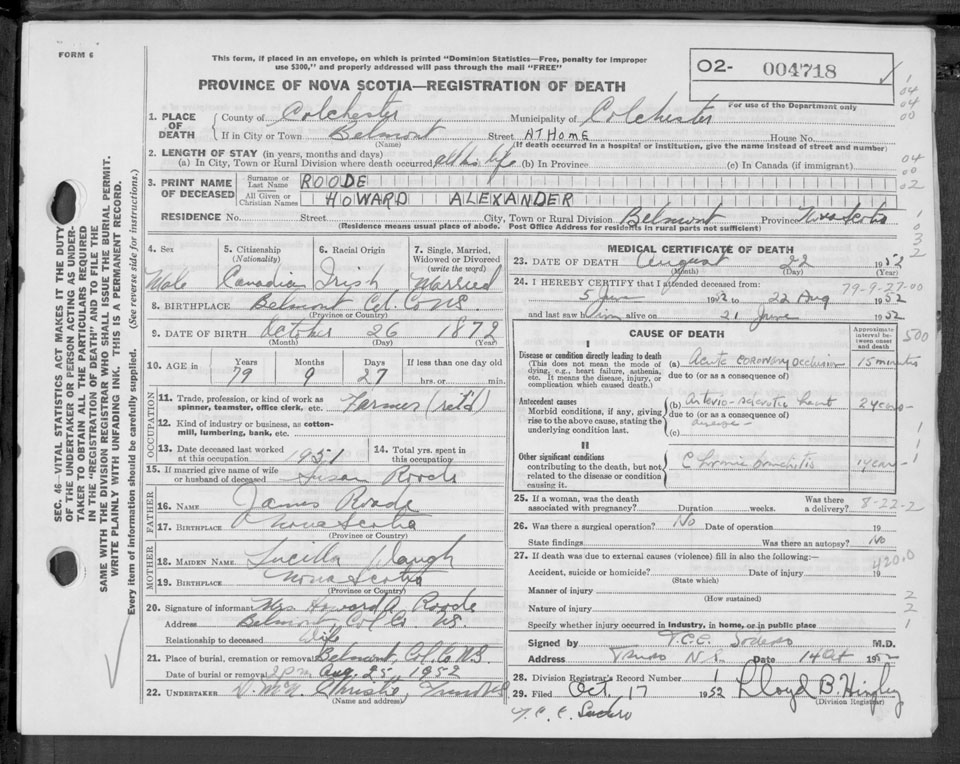 FORM 6
This form, if placed in an envelope, on which is printed "Dominion Statistics—Free, penalty for improper
use $300," and properly addressed will pass through the mail "FREE"
O2- 004718
PROVINCE OF NOVA SCOTIA—REGISTRATION OF DEATH
For use of the Department only
1. PLACE OF DEATH
County of Colchester Municipality of Colchester
If in City or Town Belmont Street AT HOME House No.
(Name) (If death occurred in a hospital or institution, give the name instead of street and number)
2. LENGTH OF STAY (in years, months and days)
(a) In City, Town or Rural Division where death occurred all his life (b) In Province (c) In Canada (if immigrant)
3. PRINT NAME OF DECEASED
Surname or Last Name ROODE
All Given or Christian Names HOWARD ALEXANDER
RESIDENCE No. Street City, Town or Rural Division Belmont Province Nova Scotia
(Residence means usual place of abode. Post Office Address for residents in rural parts not sufficient)
4. Sex 5. Citizenship (Nationality) 6. Racial Origin 7. Single, Married, Widowed or Divorced (write the word)
Male Canadian Irish Married
8. BIRTHPLACE Belmont Col. Co NS.
(Province or Country)
9. DATE OF BIRTH October 26 1872
(Month) (Day) (Year)
10. AGE in Years Months Days If less than one day old
79 9 27 hrs. or min.
OCCUPATION
11. Trade, profession, or kind of work as spinner, teamster, office clerk, etc. Farmer (ret'd)
12. Kind of industry or business, as cotton-mill, lumbering, bank, etc.
13. Date deceased last worked at this occupation 1951 14. Total yrs. spent in this occupation
15. If married give name of wife or husband of deceased Susan Roode
FATHER
16. NAME James Roode
17. BIRTHPLACE Nova Scotia
(Province or Country)
MOTHER
18. MAIDEN NAME Lucilla
19. BIRTHPLACE Nova Scotia
(Province or Country)
20. Signature of informant Mrs Howard A Roode
Address Belmont Col Co NS.
Relationship to deceased Wife
21. Place of burial, cremation or removal Belmont, Col. Co. N.S.
Date of burial or removal 2 pm Aug. 25 1952
22. UNDERTAKER Christie, Truro NS
(Name and address)
MEDICAL CERTIFICATE OF DEATH
23. DATE OF DEATH August 22 1952
(Month) (Day) (Year)
24. I HEREBY CERTIFY that I attended deceased from: 79-9-27-00
5 June 1952 to 22 Aug 1952
and last saw him alive on 21 June 1952
CAUSE OF DEATH
Approximate interval between onset and death
I
Disease or condition directly leading to death
(This does not mean the mode of dying, e.g., heart failure, asthenia, etc. It means the disease, injury, or complication which caused death.)
(a) Acute coronary occlusion 15 minutes
due to (or as a consequence of)
Antecedent causes
Morbid conditions, if any, giving rise to the above cause, stating the underlying condition last.
(b) Arterio-sclerotic heart 2 years
due to (or as a consequence of)
disease
(c)
II
Other significant conditions
contributing to the death, but not related to the disease or condition causing it.
Chronic bronchitis 1 year
25. If a woman, was the death associated with pregnancy? Duration weeks. Was there a delivery? 8-22-2
26. Was there a surgical operation? No Date of operation 19
State findings Was there an autopsy? No
27. If death was due to external causes (violence) fill in also the following:— 420.0
Accident, suicide or homicide? Date of injury 19
(State which)
Manner of injury
(How sustained)
Nature of injury
Specify whether injury occurred in industry, in home, or in public place
Signed by T.C.C. Sodero M.D.
Address Truro N.S. Date 14 Oct 1952
28. Division Registrar's Record Number 1
29. Filed Oct 17 1952 Lloyd B. Hingley
(Division Registrar)
T. C. C. Sodero
SEC. 46—VITAL STATISTICS ACT MAKES IT THE DUTY
OF THE UNDERTAKER OR PERSON ACTING AS UNDER-
TAKER TO OBTAIN ALL THE PARTICULARS REQUIRED
IN THE "REGISTRATION OF DEATH" AND TO FILE THE
SAME WITH THE DIVISION REGISTRAR WHO SHALL ISSUE THE BURIAL PERMIT.
WRITE PLAINLY WITH UNFADING INK. THIS IS A PERMANENT RECORD.
Every item of information should be carefully supplied. (See reverse side for instructions.)